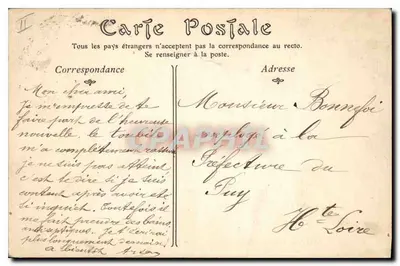 II
Carte Postale
Tous les pays étrangers n'acceptent pas la correspondance au recto.
Se renseigner à la poste.
Correspondance
Adresse
Mon cher ami,
Je m'empresse de te
faire part de l'heureuse
nouvelle. le
m'a complètement
je ne suis pas atteint
c'est te dire si je suis
content après avoir été
si inquiet. Toutefois il
me faut prendre des bains
Je t'écrirai
plus longuement demain
à bientôt
Monsieur Bonnefoi
à la
Préfecture du
Puy
Hte Loire
PRCarte